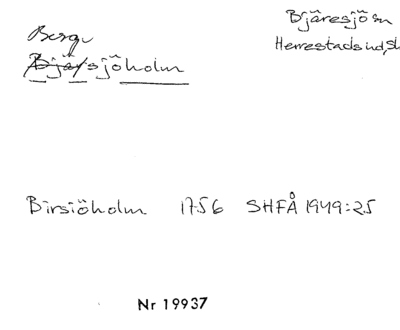 Bjäresjö sn
Herrestads hd, Sk
Bergs
Bjäresjöholm
Birsiöholm 1756 SHFÅ 1949:25
Nr 19937